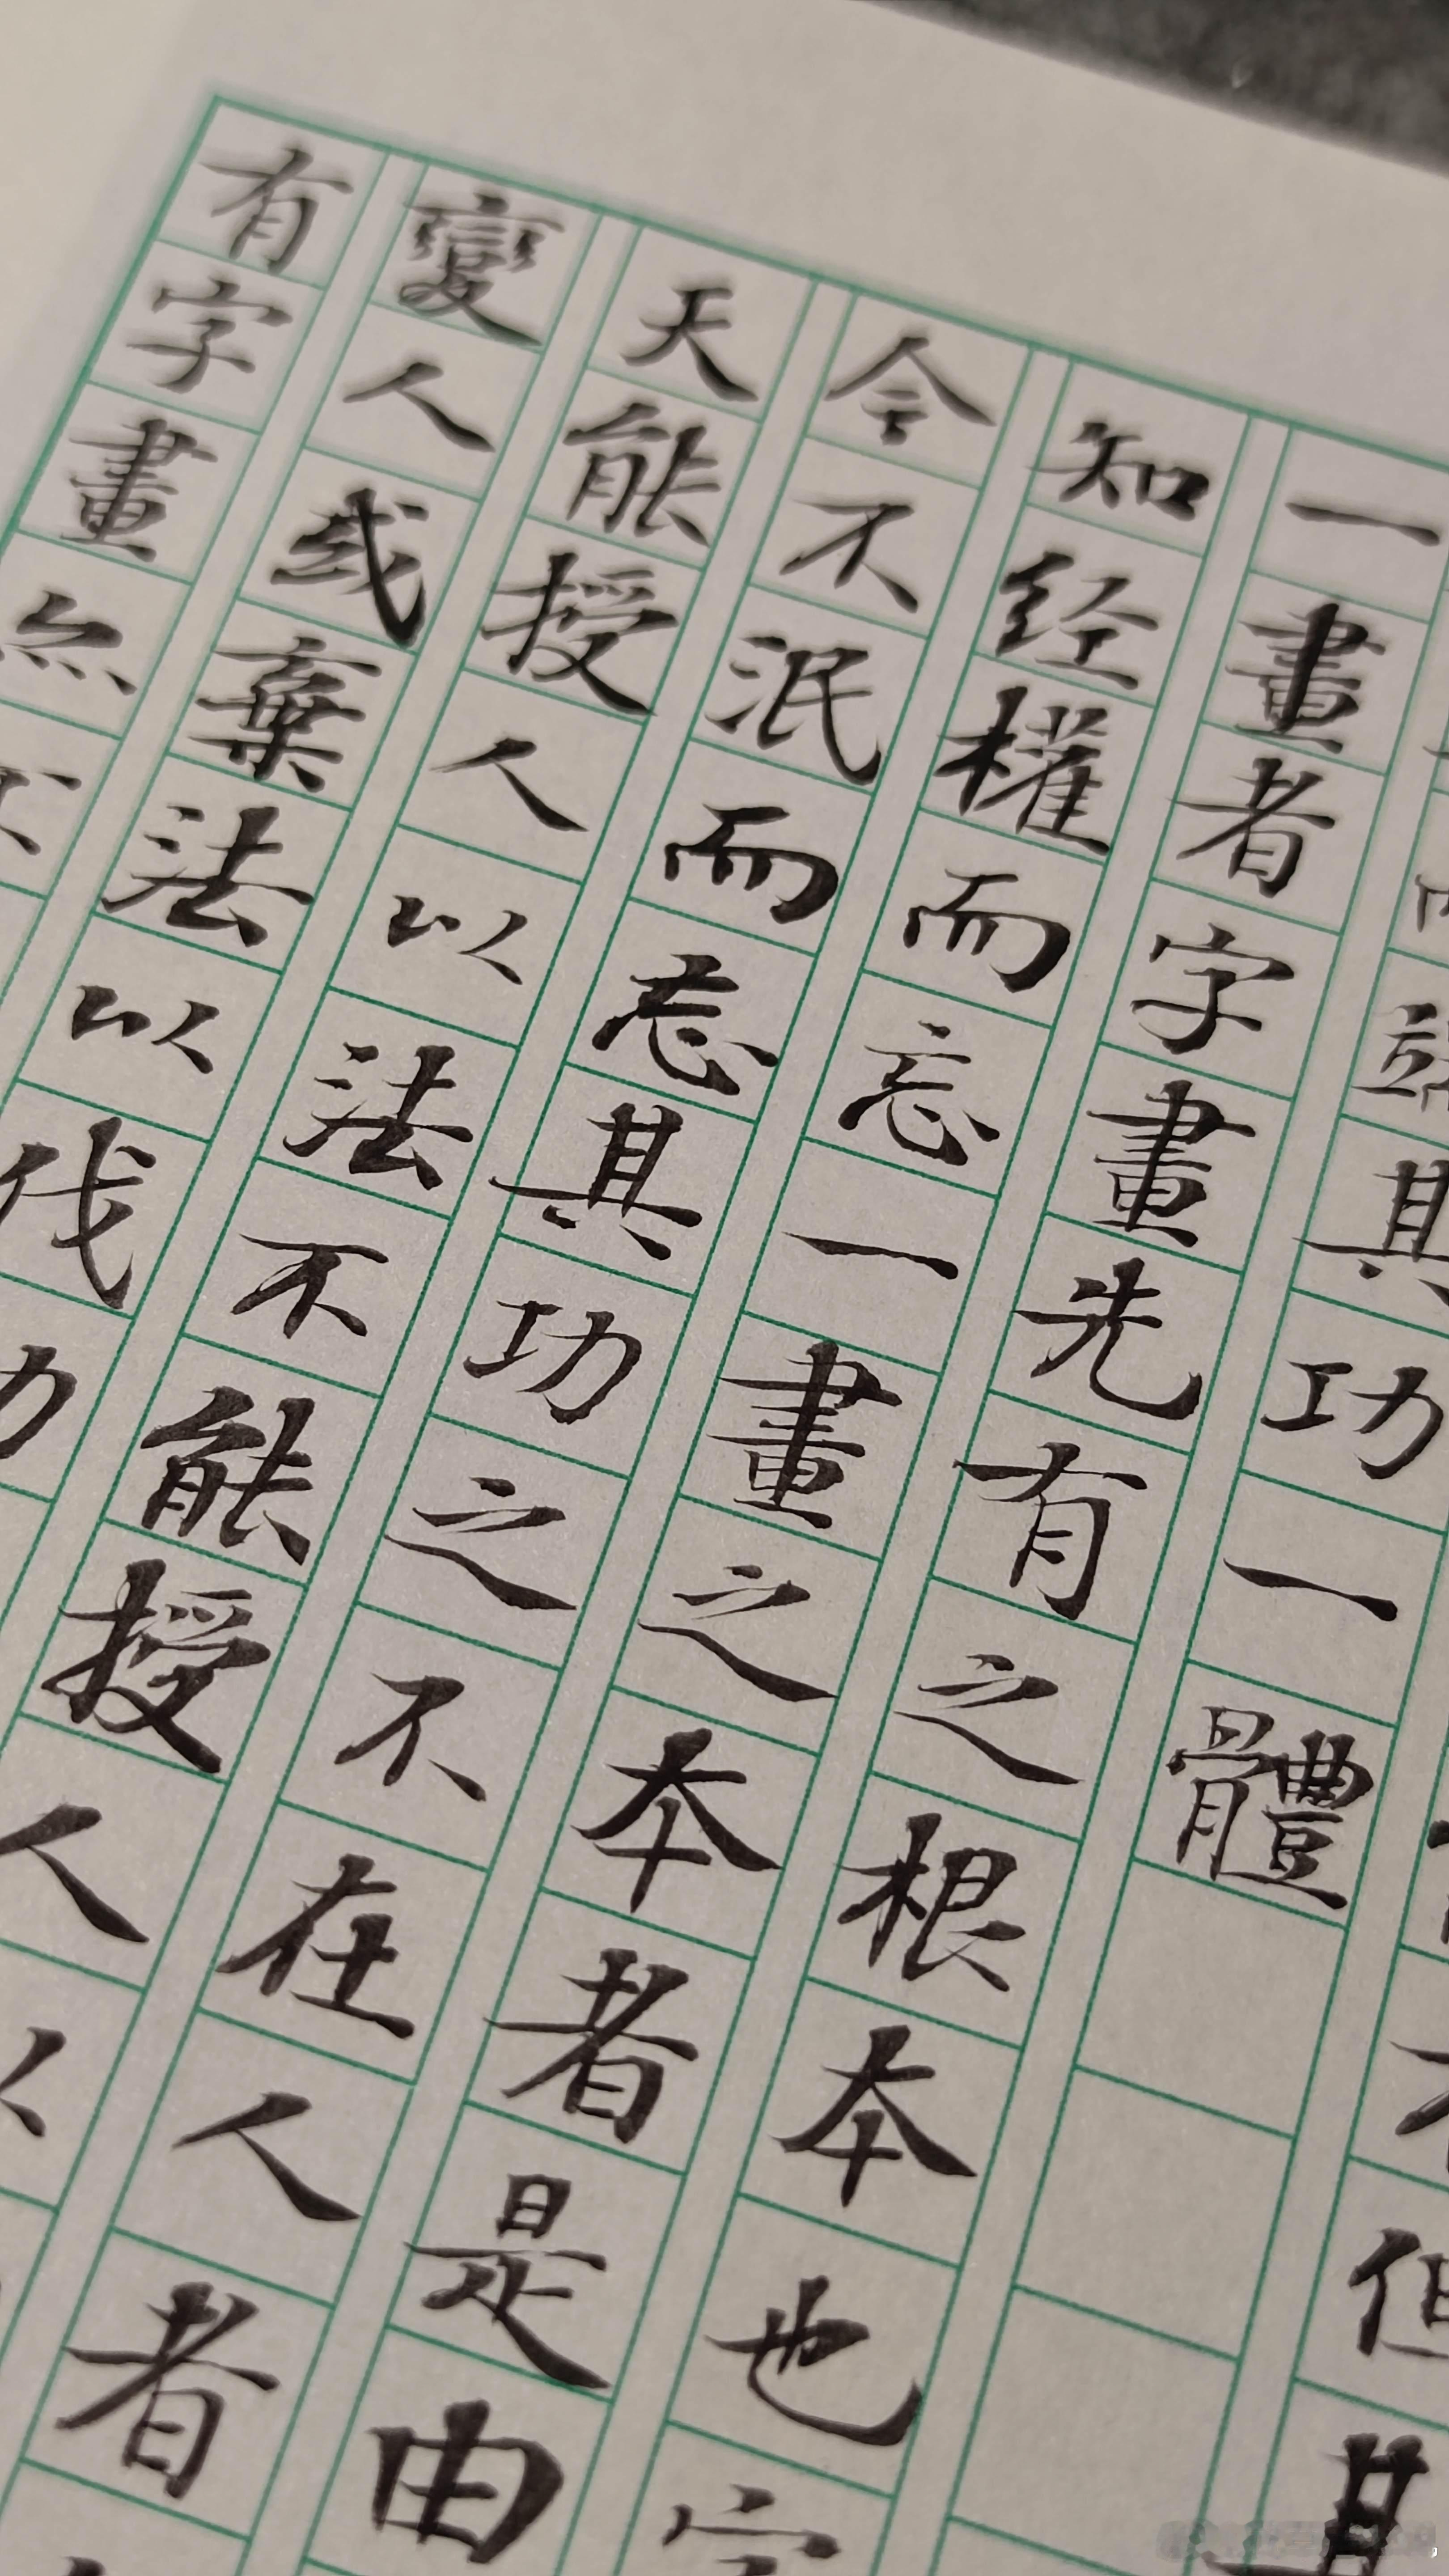 其功一體
一畫者字畫先有之根本也字
知经權而忘一畫之本者是由
今不泯而忘其功之不在人者
天能授人以法不能授人以
變人或棄法以伐功
有字畫